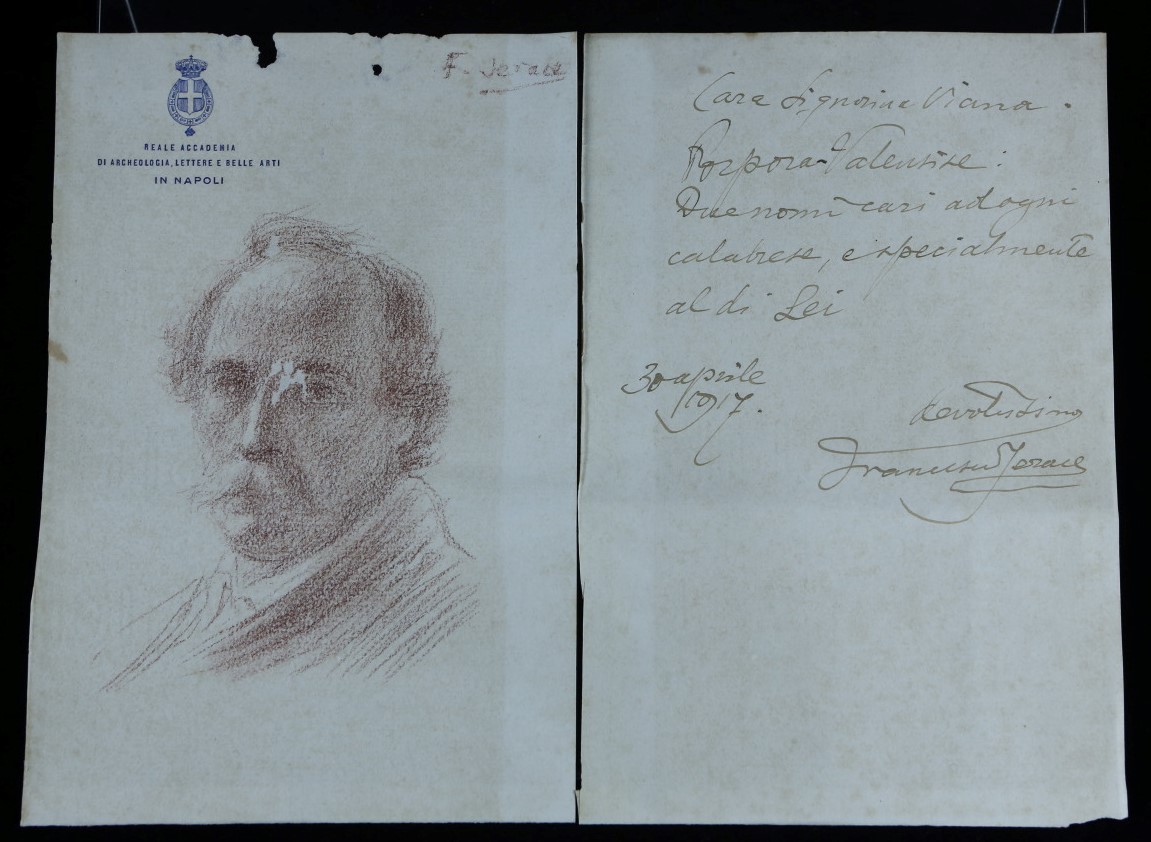 F. Jerace
REALE ACCADEMIA
DI ARCHEOLOGIA, LETTERE E BELLE ARTI
IN NAPOLI
Cara Signorina Viana.
Porpora-Valensise:
Due nomi cari ad ogni
calabrese, e specialmente
al di Lei
30 aprile
1917.
devotissimo
Francesco Jerace